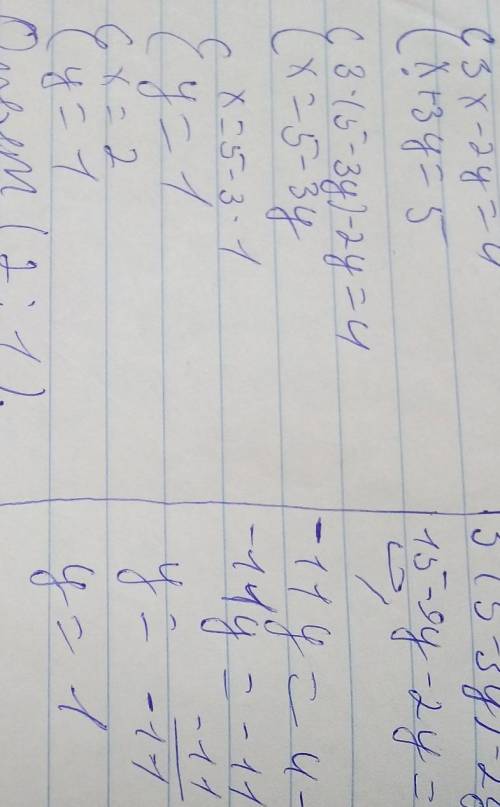 { 3x-2y=4
{ x+3y=5
{ 3·(5-3y)-2y=4
{ x=5-3y
{ x=5-3·1
{ y=1
{ x=2
{ y=1
Ответ (2;1).
3(5-3y)-2
15-9y-2y=
-11y=4-
-11y=-11
y=-11/-11
y=1